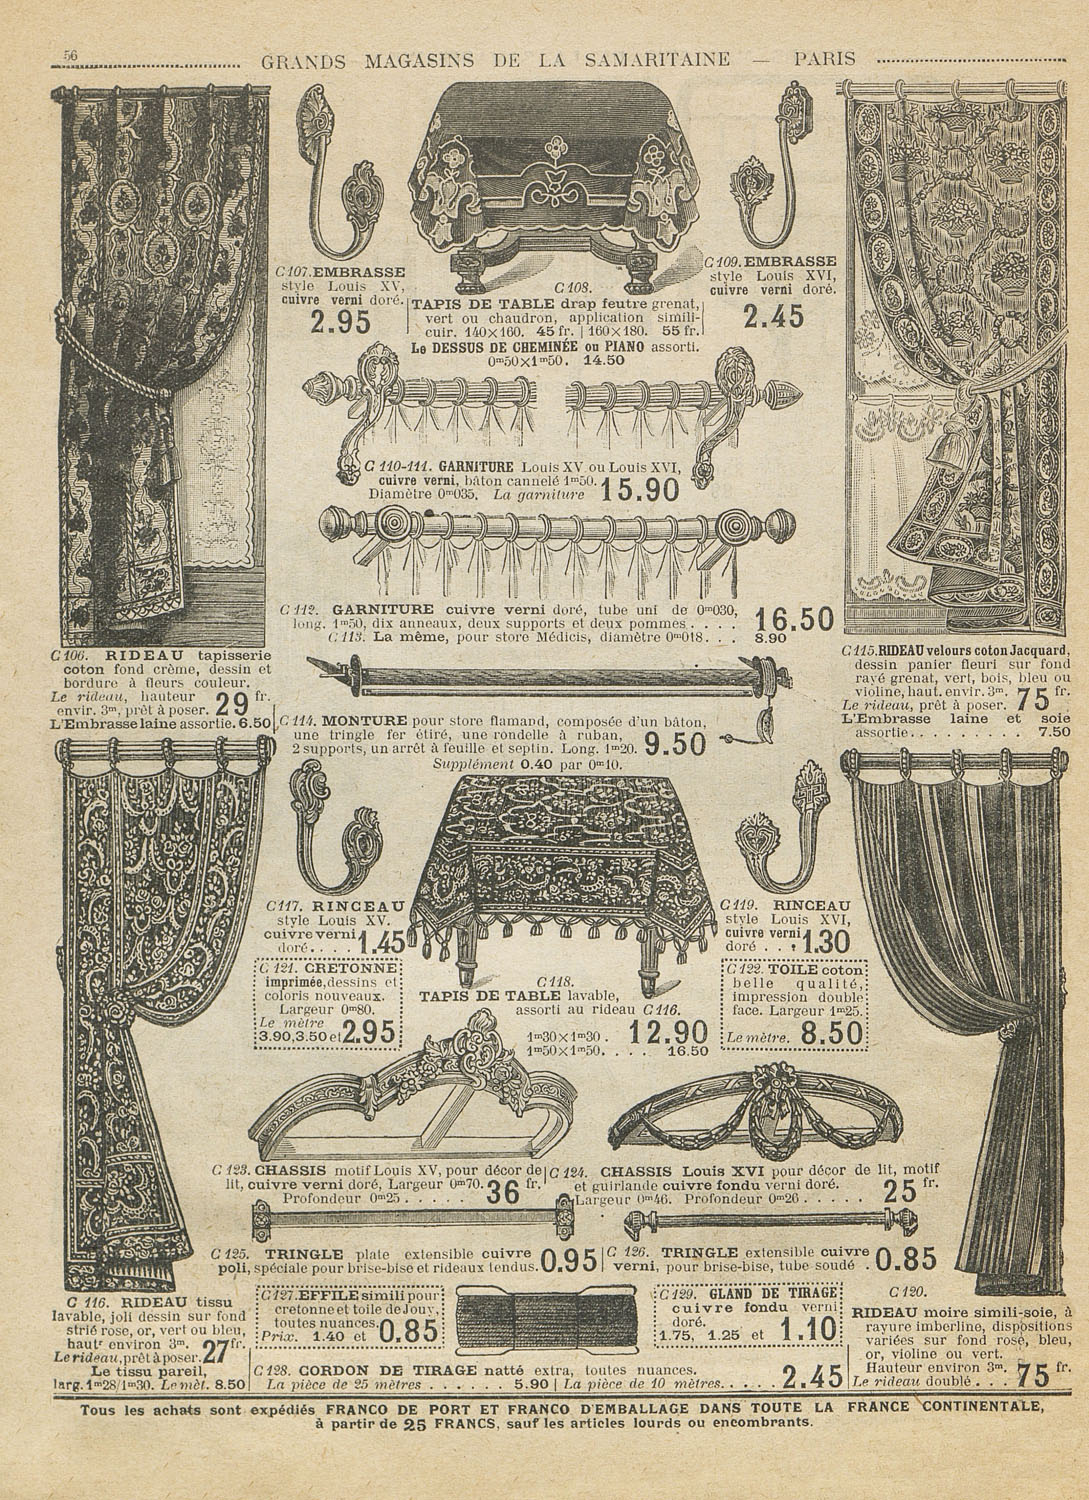 56
GRANDS MAGASINS DE LA SAMARITAINE — PARIS
C 107. EMBRASSE
style Louis XV,
cuivre verni doré.
2.95
C 108.
TAPIS DE TABLE drap feutre grenat,
vert ou chaudron, application simili-
cuir. 140×160. 45 fr. | 160×180. 55 fr.
Le DESSUS DE CHEMINÉE ou PIANO assorti.
0m50×1m50. 14.50
C 109. EMBRASSE
style Louis XVI,
cuivre verni doré.
2.45
C 110-111. GARNITURE Louis XV ou Louis XVI,
cuivre verni, bâton cannelé 1m50.
Diamètre 0m035. La garniture 15.90
C 112. GARNITURE cuivre verni doré, tube uni de 0m030,
long. 1m50, dix anneaux, deux supports et deux pommes . . . . 16.50
C 113. La même, pour store Médicis, diamètre 0m018. . . 8.90
C 106. RIDEAU tapisserie
coton fond crème, dessin et
bordure à fleurs couleur.
Le rideau, hauteur
envir. 3m, prêt à poser. 29 fr.
L'Embrasse laine assortie. 6.50
C 114. MONTURE pour store flamand, composée d'un bâton,
une tringle fer étiré, une rondelle à ruban,
2 supports, un arrêt à feuille et septin. Long. 1m20. 9.50
Supplément 0.40 par 0m10.
C 115. RIDEAU velours coton Jacquard,
dessin panier fleuri sur fond
rayé grenat, vert, bois, bleu ou
violine, haut. envir. 3m.
Le rideau, prêt à poser. 75 fr.
L'Embrasse laine et soie
assortie. . . . . . . . . . 7.50
C 117. RINCEAU
style Louis XV.
cuivre verni
doré. . . . 1.45
C 118.
TAPIS DE TABLE lavable,
assorti au rideau C 116.
1m30×1m30 . 12.90
1m50×1m50. . . . 16.50
C 119. RINCEAU
style Louis XVI,
cuivre verni
doré . . . 1.30
C 121. CRETONNE
imprimée, dessins et
coloris nouveaux.
Largeur 0m80.
Le mètre
3.90, 3.50 et 2.95
C 122. TOILE coton
belle qualité,
impression double
face. Largeur 1m25.
Le mètre. 8.50
C 123. CHASSIS motif Louis XV, pour décor de
lit, cuivre verni doré, Largeur 0m70.
Profondeur 0m25 . . . . . 36 fr.
C 124. CHASSIS Louis XVI pour décor de lit, motif
et guirlande cuivre fondu verni doré.
Largeur 0m46. Profondeur 0m26 . . . . . 25 fr.
C 125. TRINGLE plate extensible cuivre
poli, spéciale pour brise-bise et rideaux tendus. 0.95
C 126. TRINGLE extensible cuivre
verni, pour brise-bise, tube soudé . 0.85
C 116. RIDEAU tissu
lavable, joli dessin sur fond
strié rose, or, vert ou bleu,
hautr environ 3m.
Le rideau, prêt à poser. 27 fr.
Le tissu pareil,
larg. 1m28/1m30. Le mèt. 8.50
C 127. EFFILE simili pour
cretonne et toile de Jouy,
toutes nuances.
Prix. 1.40 et 0.85
C 129. GLAND DE TIRAGE
cuivre fondu verni
doré.
1.75, 1.25 et 1.10
C 128. CORDON DE TIRAGE natté extra, toutes nuances.
La pièce de 25 mètres . . . . . . 5.90 | La pièce de 10 mètres. . . . 2.45
C 120.
RIDEAU moire simili-soie, à
rayure imberline, dispositions
variées sur fond rose, bleu,
or, violine ou vert.
Hauteur environ 3m.
Le rideau doublé . . . 75 fr.
Tous les achats sont expédiés FRANCO DE PORT ET FRANCO D'EMBALLAGE DANS TOUTE LA FRANCE CONTINENTALE,
à partir de 25 FRANCS, sauf les articles lourds ou encombrants.